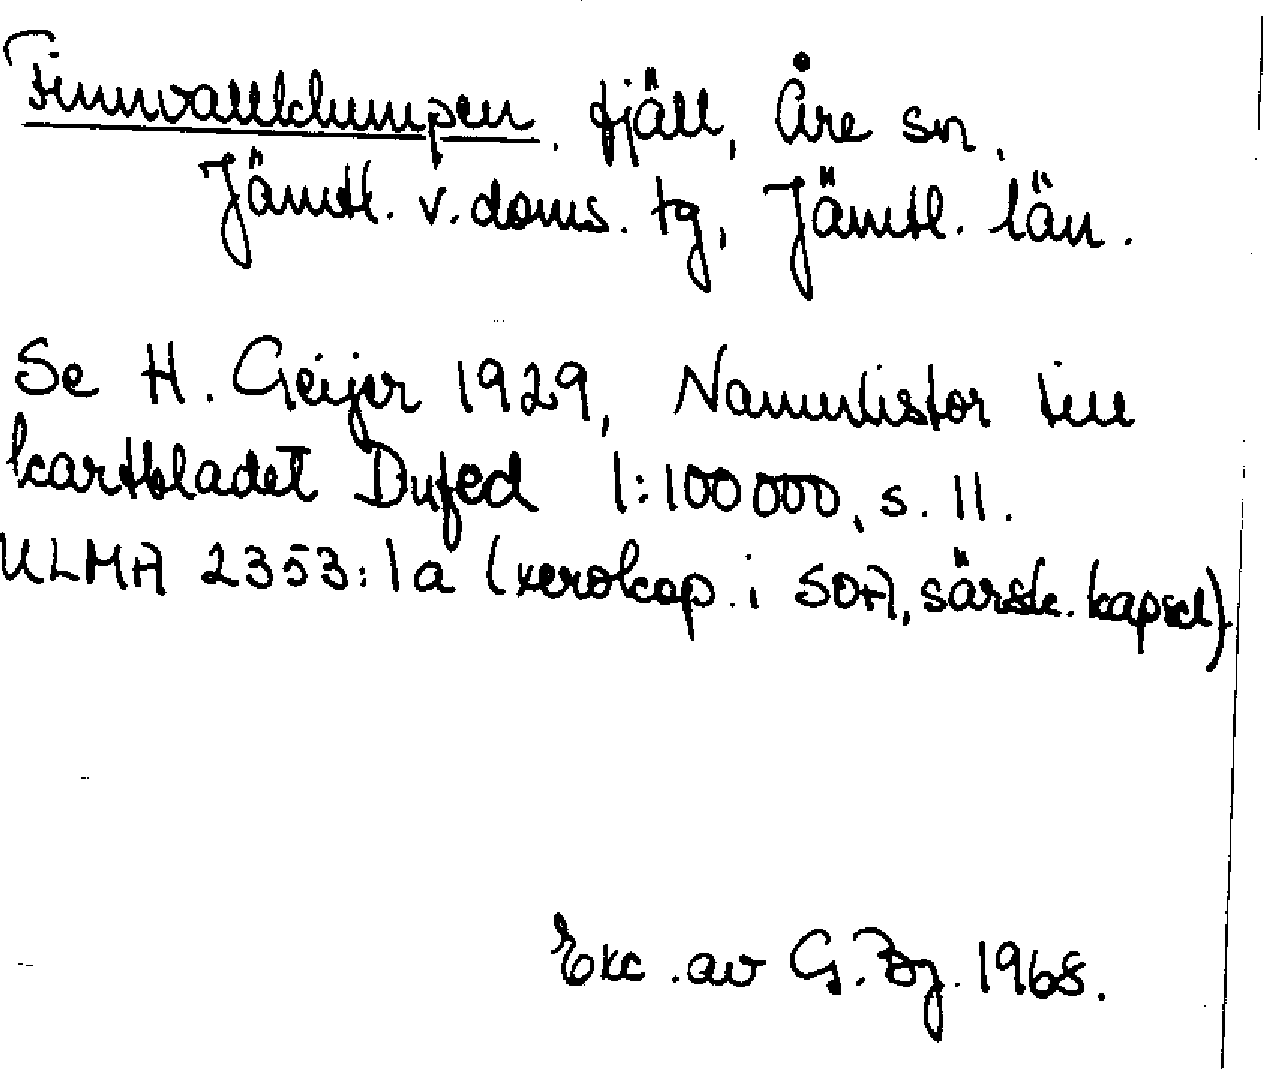 Finnvallklumpen, fjäll, Åre sn,
Jämtl. v. doms. tg, Jämtl. län.
Se H. Geijer 1929, Namnlistor till
kartbladet Dufed 1:100 000, s. 11.
ULMA 2353:1a (xerokop. i SOA, särsk. kapsel)
Exc. av G. Bg. 1968.